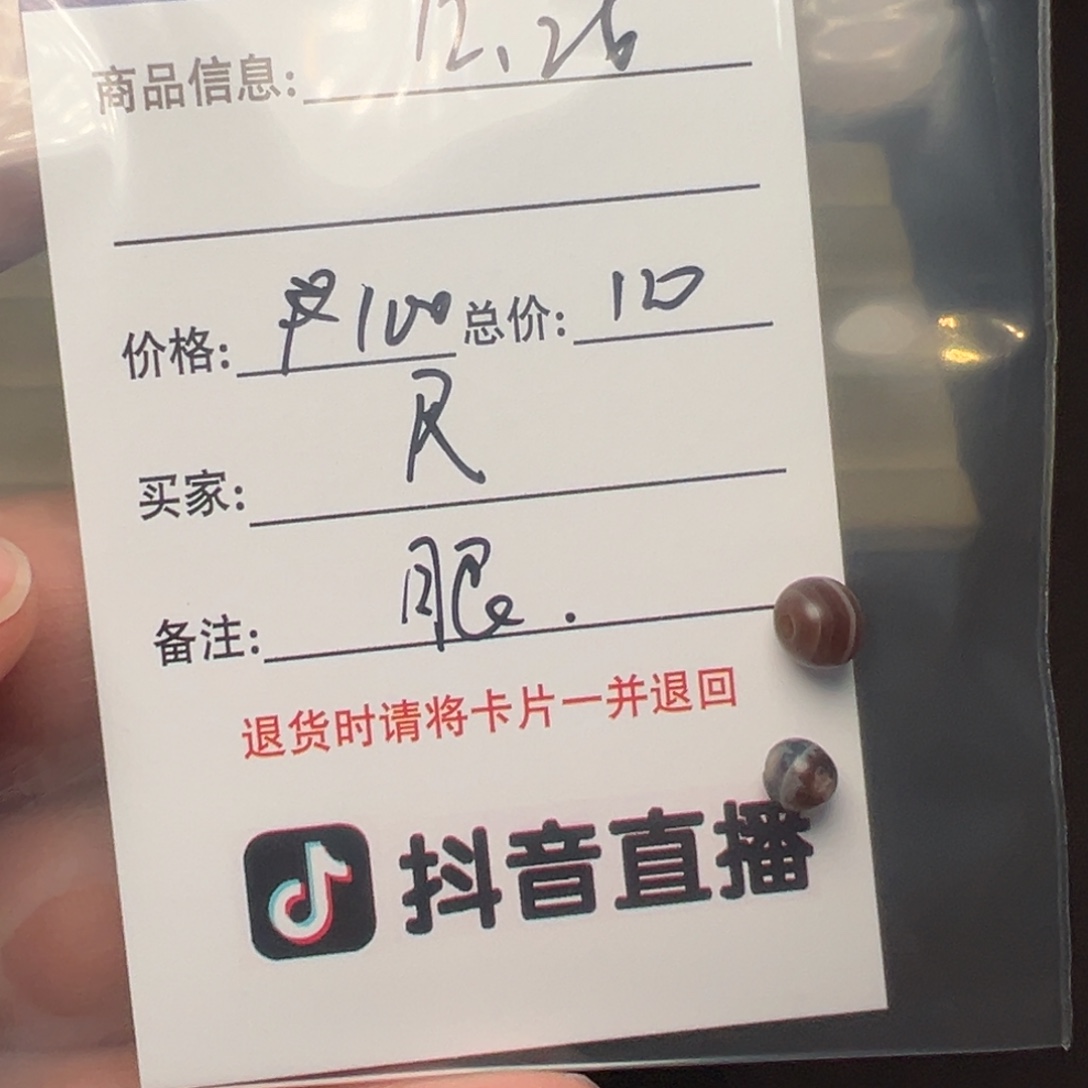 商品信息: 12.26
价格: 100 总价: 10
买家: R
备注: 眼.
退货时请将卡片一并退回
抖音直播